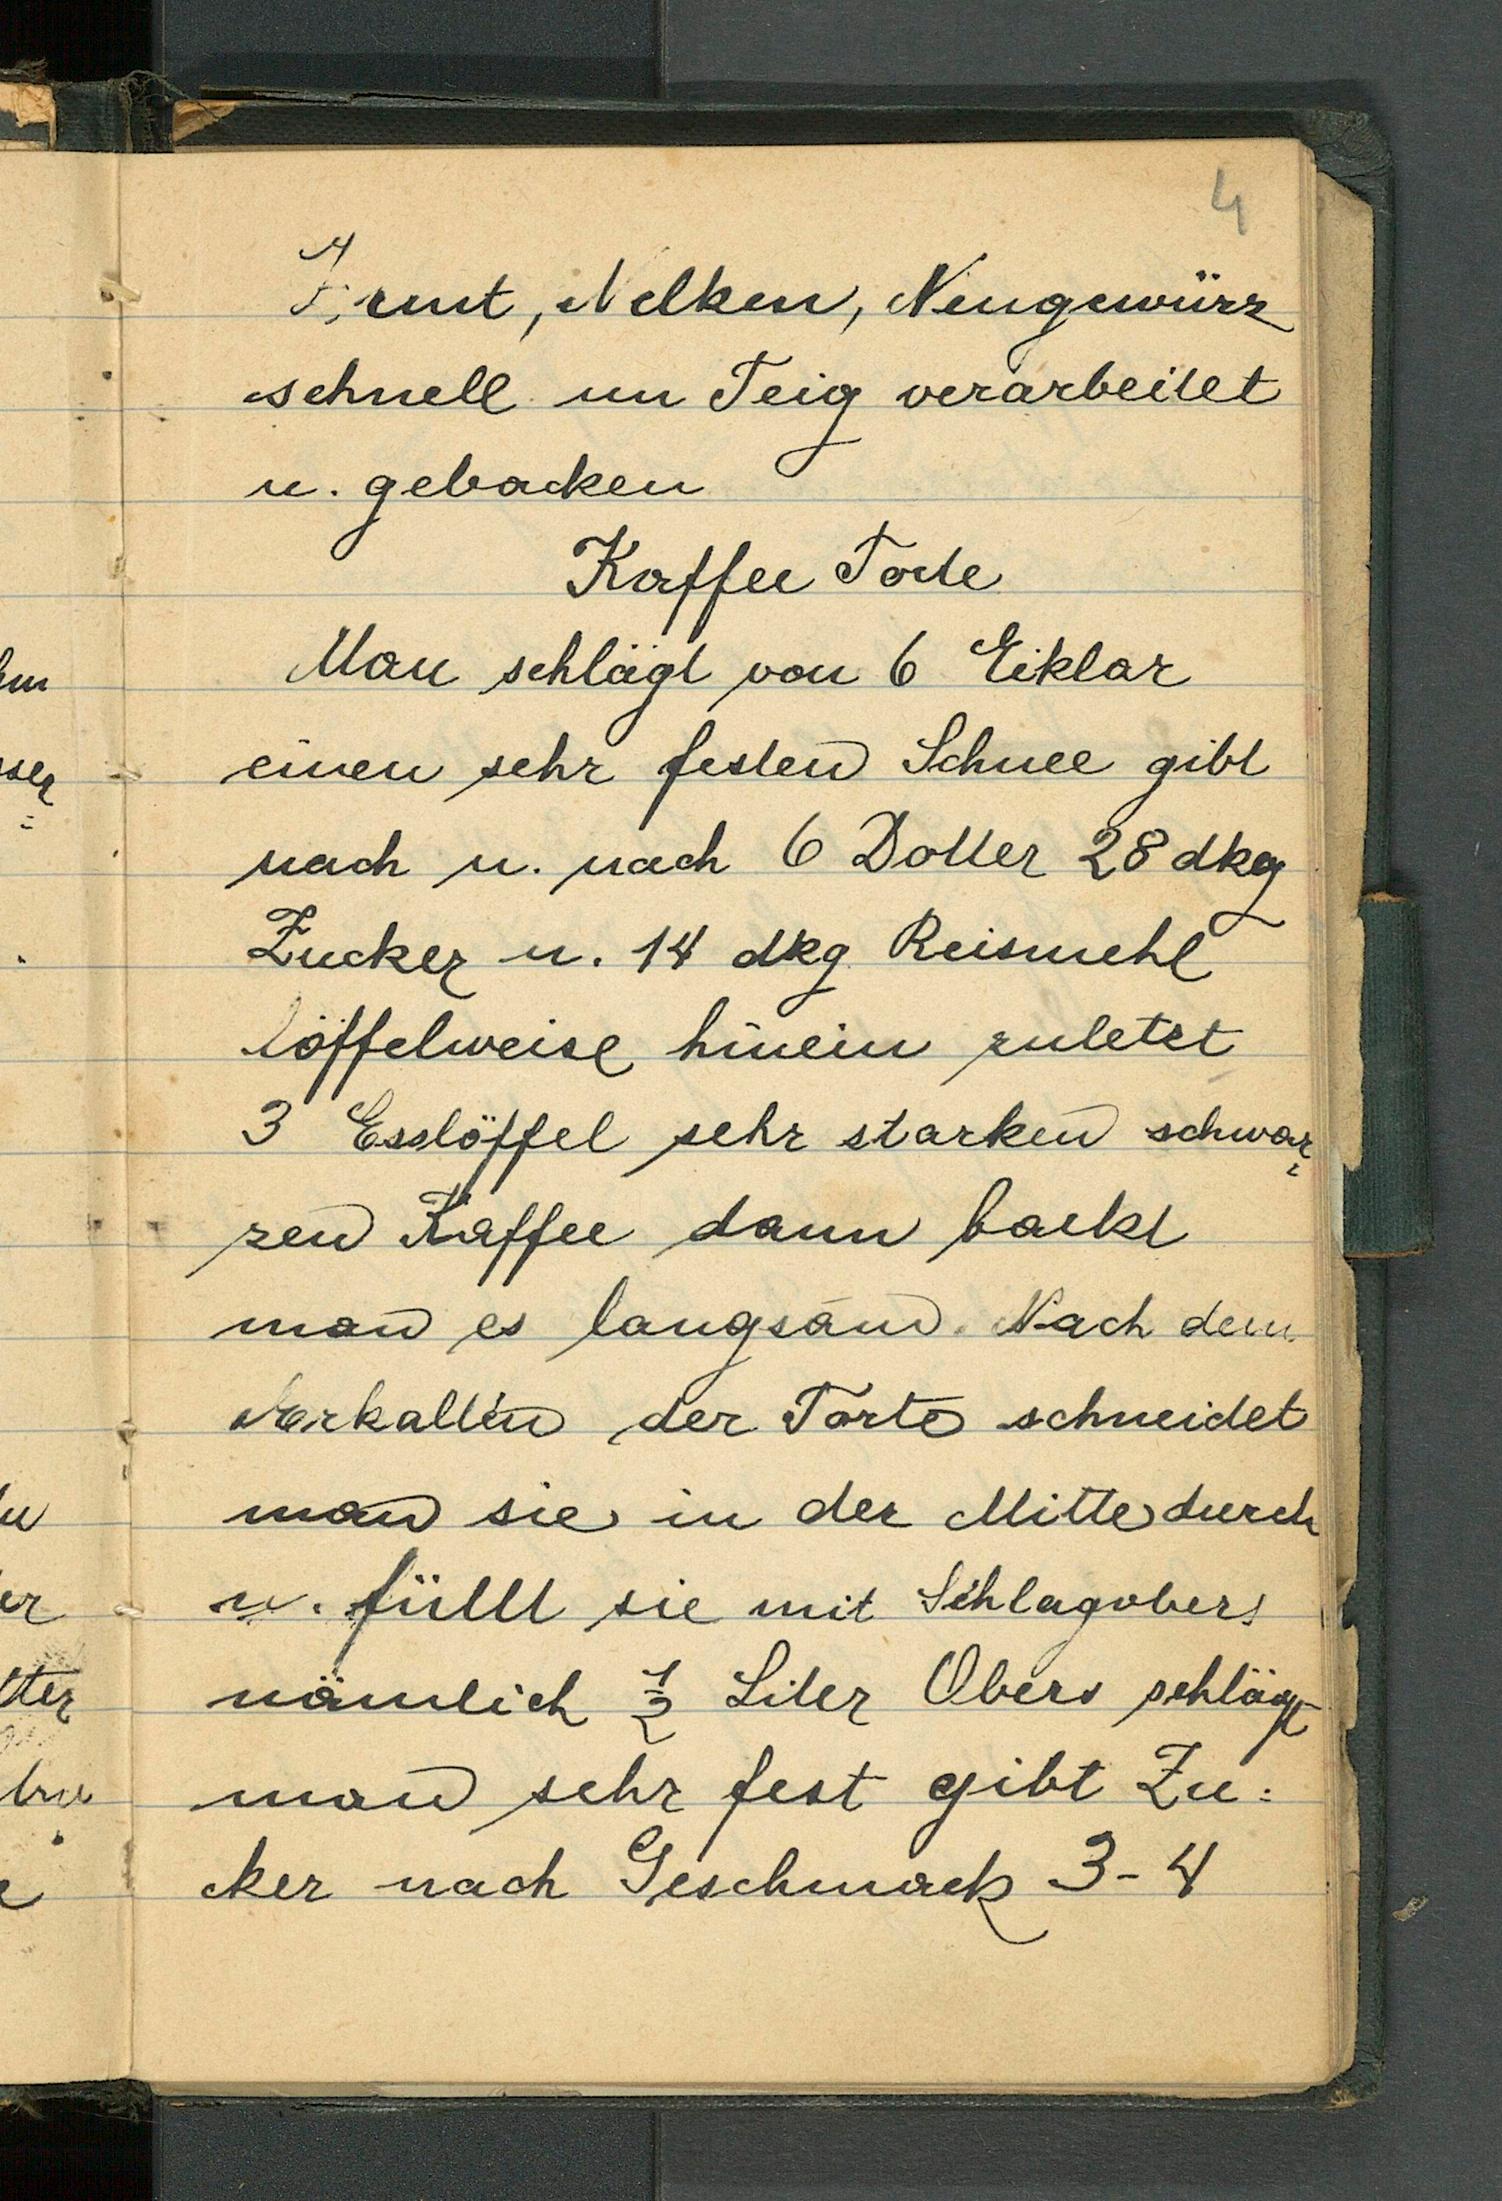 4
Zimt, Nelken, Neugewürz
schnell um Teig verarbeitet
u. gebacken
Kaffee Torte
Man schlägt von 6 Eiklar
einen sehr festen Schnee gibt
nach u. nach 6 Dotter 28 dkg
Zucker u. 14 dkg Reismehl
löffelweise hinein zuletzt
3 Esslöffel sehr starken schwar=
zen Kaffee dann backt
man es langsam. Nach dem
Erkalten der Torte schneidet
man sie in der Mitte durch
u. füllt sie mit Schlagobers
nämlich ½ Liter Obers schlägt
man sehr fest gibt Zu=
cker nach Geschmack 3-4